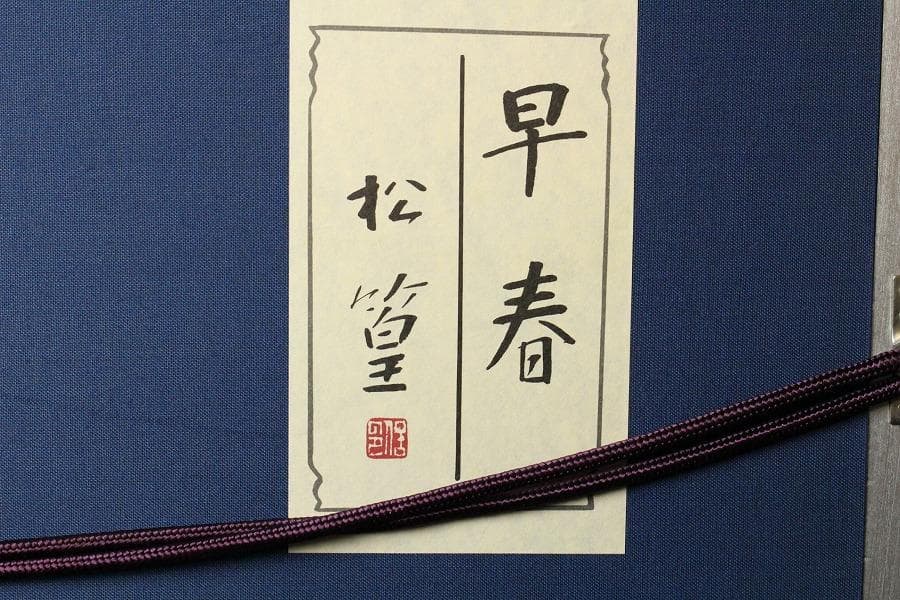 早春
松篁